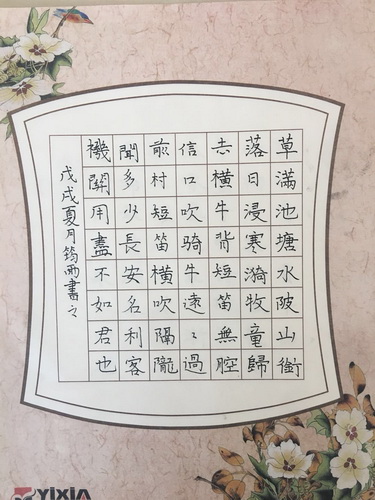 草滿池塘水陂山銜
落日浸寒漪牧童歸
去橫牛背短笛無腔
信口吹骑牛遠〻過
前村短笛橫吹隔隴
聞多少長安名利客
機關用盡不如君也
戊戌夏月筠雨書之
YIXIA